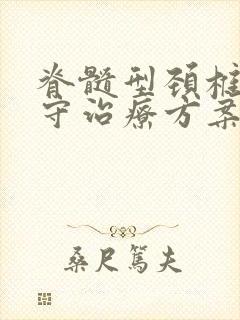 脊髓型颈椎
守治疗方案
桑尺篤夫